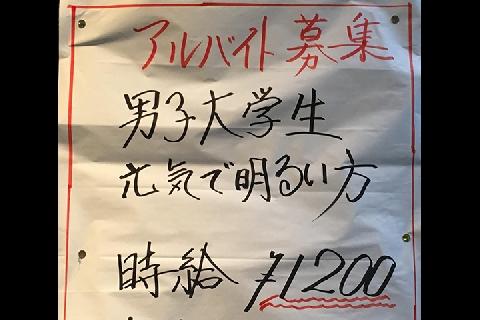 アルバイト募集
男子大学生
元気で明るい方
時給 ¥1200